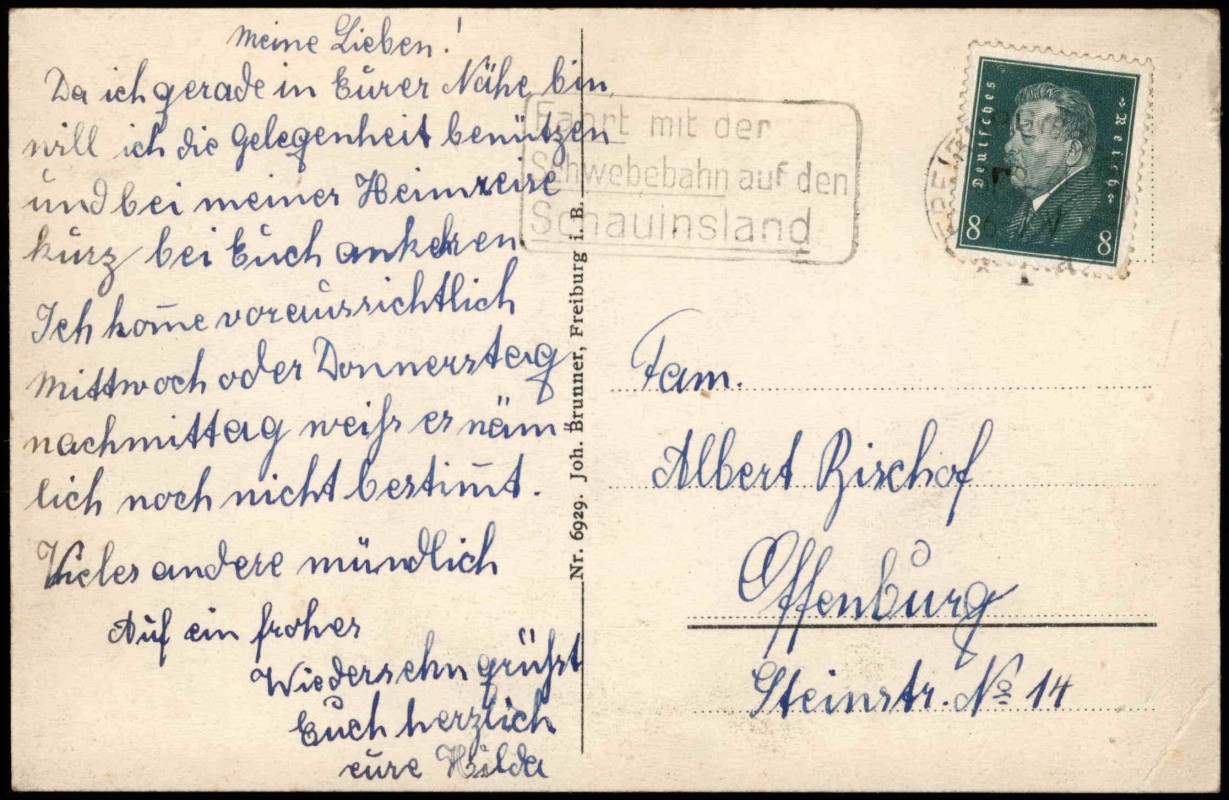 Meine Lieben!
Da ich gerade in Eurer Nähe bin,
will ich die Gelegenheit benützen
und bei meiner Heimreise
kurz bei Euch ankehren
Ich kom̅e voraussichtlich
Mittwoch oder Donnerstag
nachmittag weiss es näm-
lich noch nicht bestim̅t.
Vieles andere mündlich
Auf ein frohes
Wiedersehn grüsst
Euch herzlich
eure Hilda
Fahrt mit der
Schwebebahn auf den
Schauinsland
Nr. 6929. Joh. Brunner, Freiburg i. B.
Deutsches Reich
8 8
Fam.
Albert Bischof
Offenburg
Steinstr. No 14